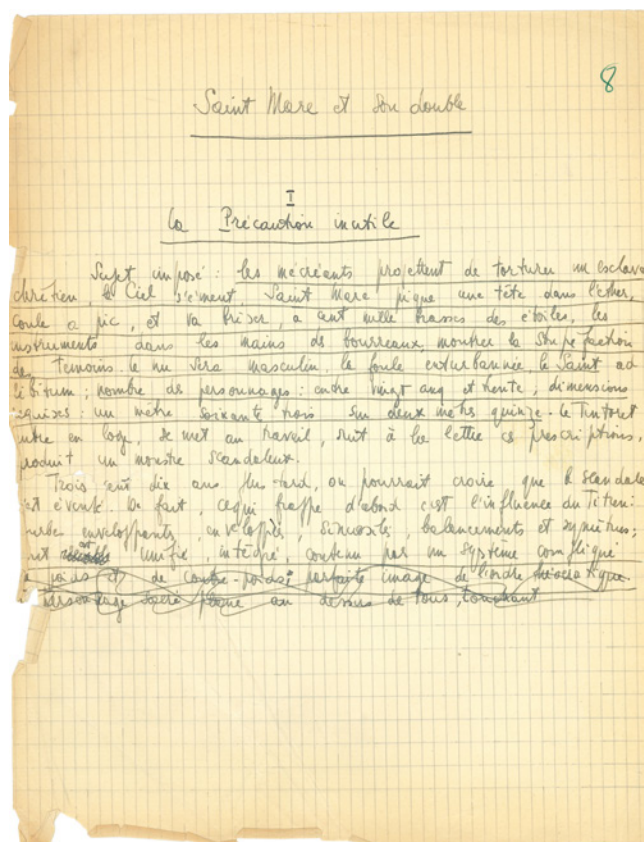 8
Saint Marc et son double
I
La Précaution inutile
Sujet imposé : les mécréants projettent de torturer un esclave
chrétien, le Ciel s'émeut, Saint Marc pique une tête dans l'éther,
coule a pic, et va briser, a cent mille brasses des étoiles, les
instruments dans les mains des bourreaux, montrer la stupefaction
des témoins. le nu sera masculin, la foule enturbannée, le Saint ad
libitum ; nombre de personnages : entre vingt cinq et trente ; dimensions
requises : un mètre soixante trois sur deux mètres quinze. le Tintoret
entre en loge, se met au travail, suit à la lettre ces prescriptions,
produit un monstre scandaleux.
Trois cent dix ans plus tard, on pourrait croire que le scandale
est éventé. De fait, ce qui frappe d'abord c'est l'influence du Titien :
enveloppants, enveloppés, sinuosités, balancements et symétries ;
est unifié, intégré, contenu par un système compliqué
poids et de contre-poids parfaite image de l'ordre
personnage sacré plane au dessus de tous, touchant